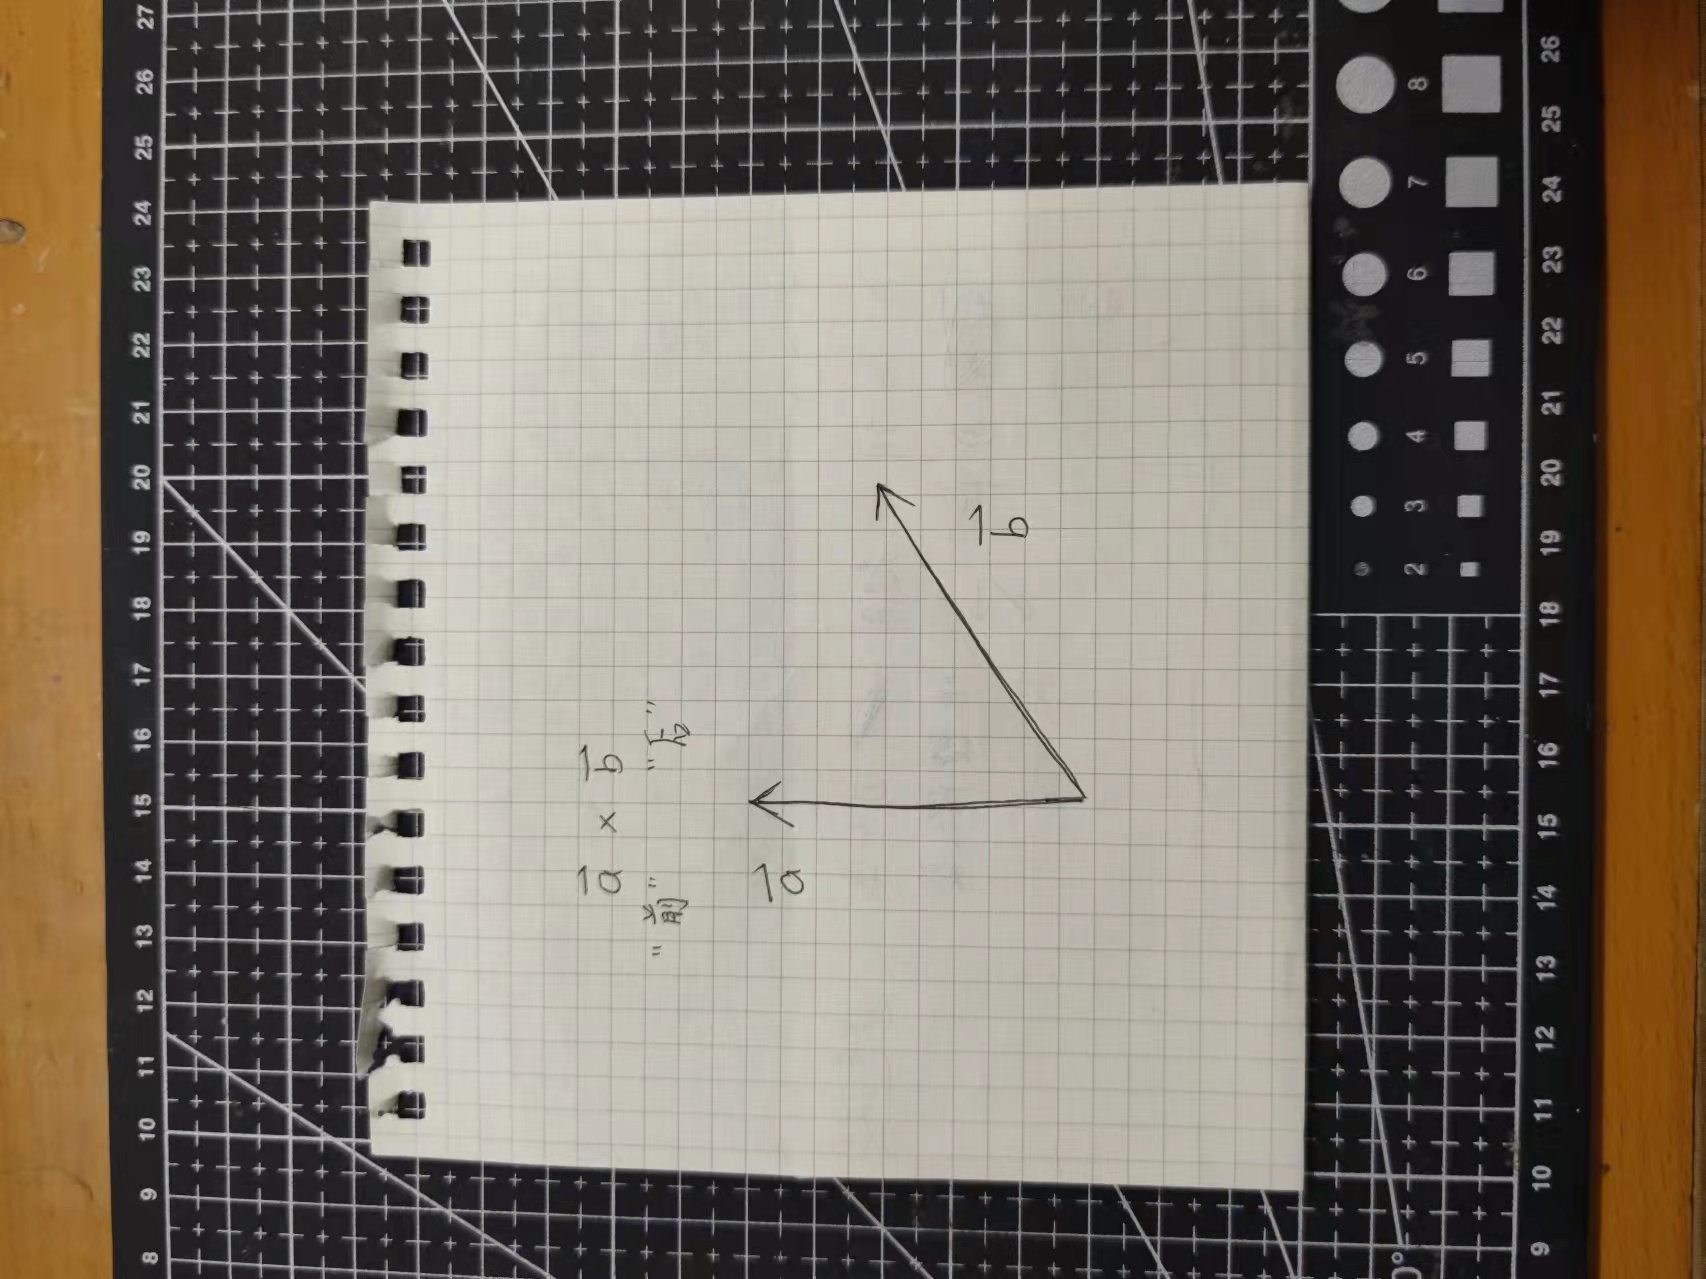 8 9 10 11 12 13 14 15 16 17 18 19 20 21 22 23 24 25 26 27
a × b
“前” “后”
a
b
0°
2 3 4 5 6 7 8
9 10 11 12 13 14 15 16 17 18 19 20 21 22 23 24 25 26